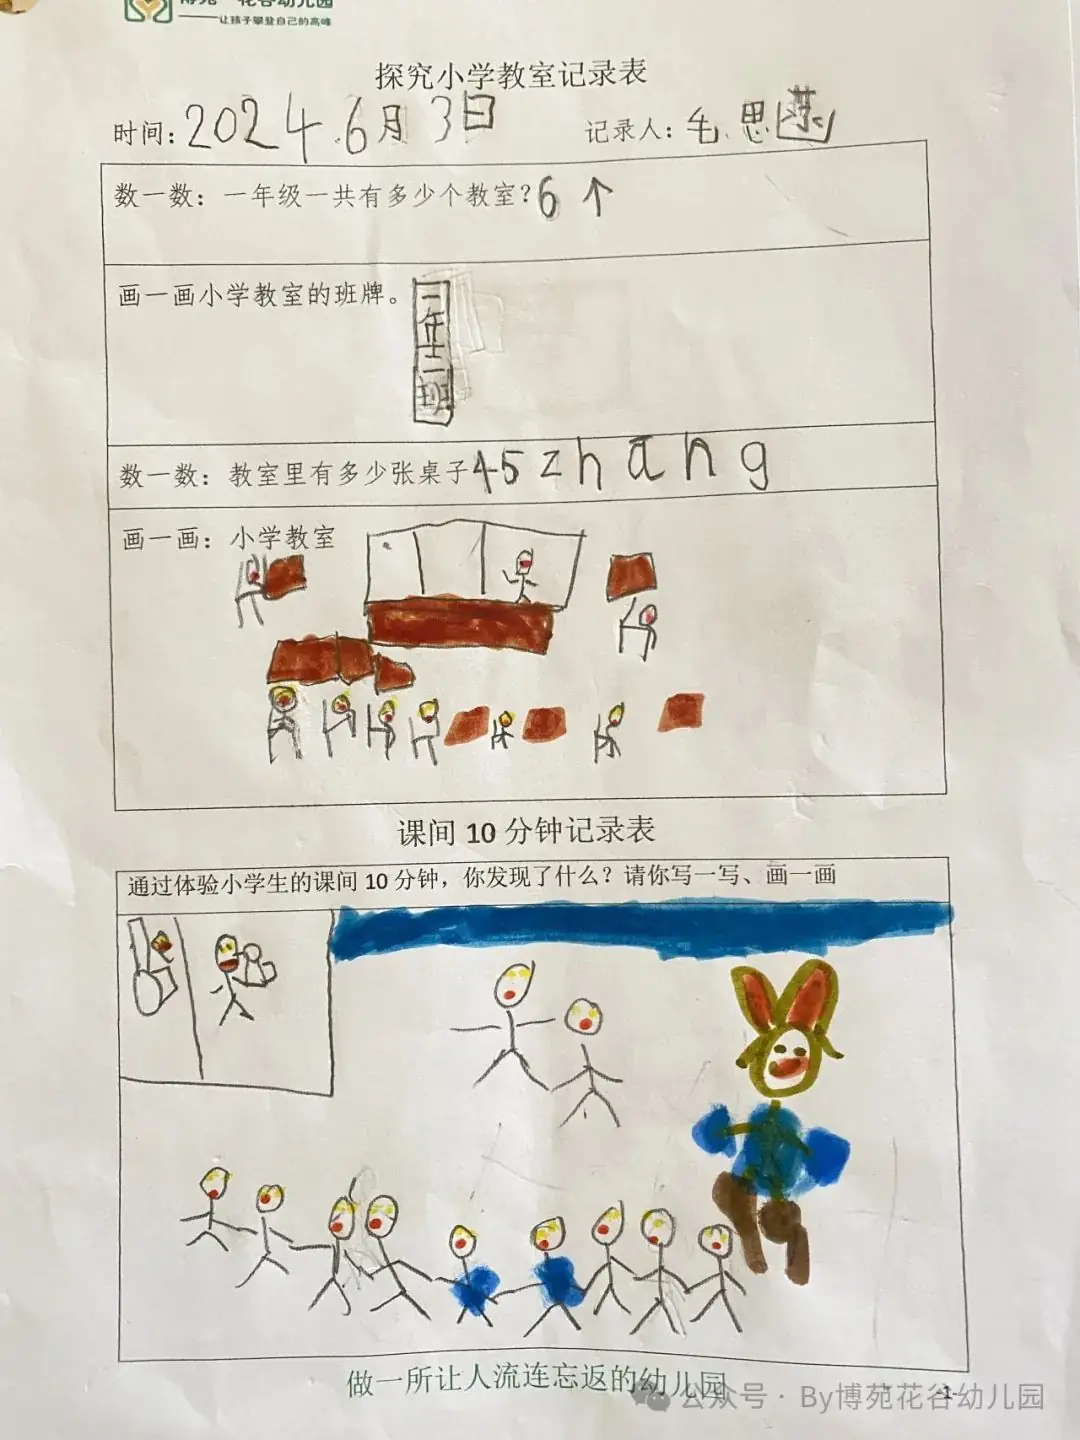 博苑·花谷幼儿园
——让孩子攀登自己的高峰
探究小学教室记录表
时间：2024.6月3日 记录人：毛思燕
数一数：一年级一共有多少个教室？6个
画一画小学教室的班牌。
一年二班
数一数：教室里有多少张桌子45zhāng
画一画：小学教室
课间10分钟记录表
通过体验小学生的课间10分钟，你发现了什么？请你写一写、画一画
做一所让人流连忘返的幼儿园
公众号·By博苑花谷幼儿园
-1-